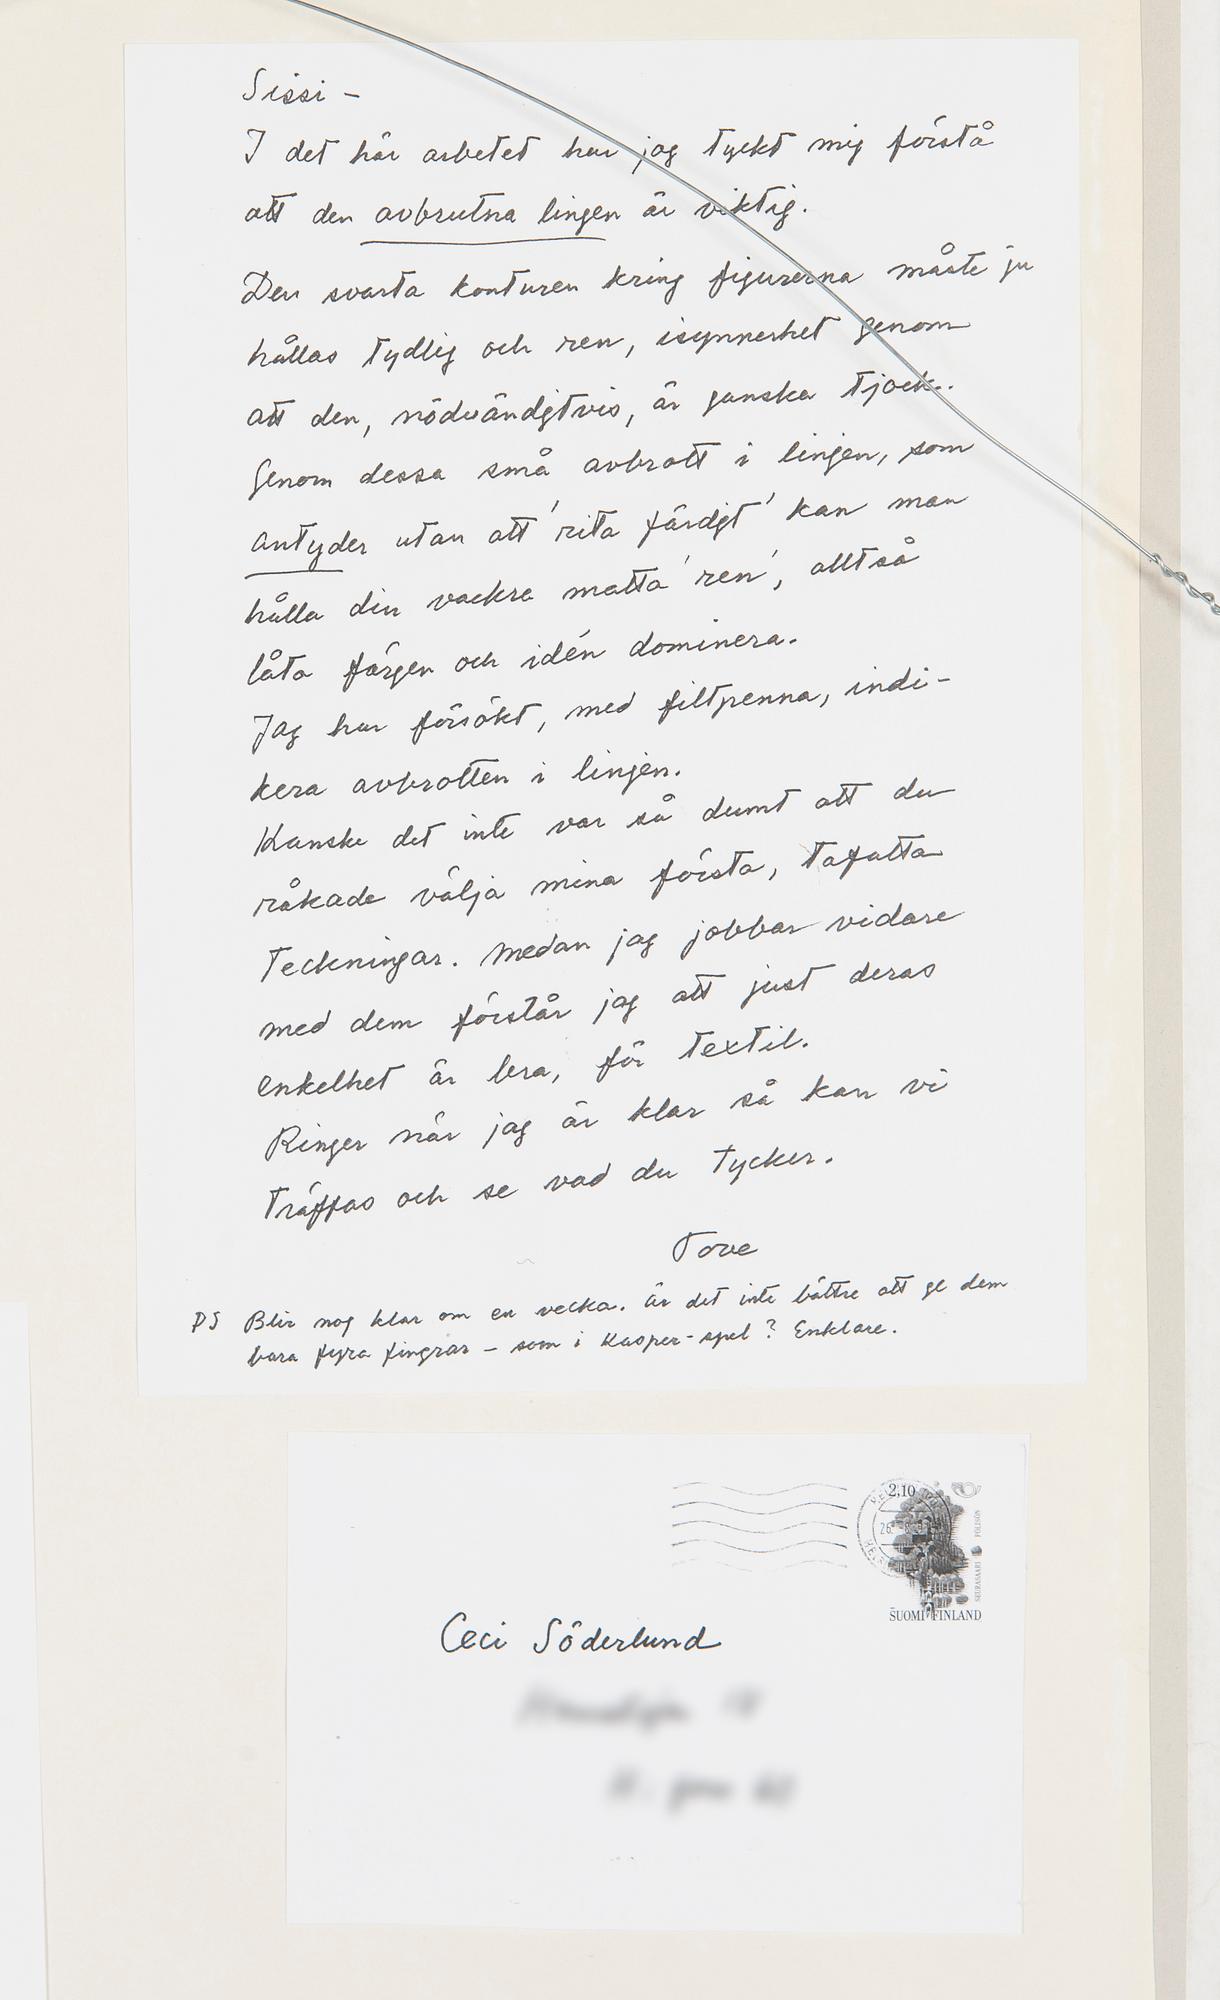 Sissi –
I det här arbetet har jag tyckt mig förstå
att den avbrutna lingen är viktig.
Den svarta konturen kring figurerna måste ju
hållas tydlig och ren, isynnerhet genom
att den, nödvändigtvis, är ganska tjock.
Genom dessa små avbrott i linjen, som
antyder utan att 'rita färdigt' kan man
hålla din vackra matta 'ren', alltså
låta färgen och idén dominera.
Jag har försökt, med filtpenna, indi-
kera avbrotten i linjen.
Kanske det inte var så dumt att du
råkade välja mina första, tafatta
teckningar. Medan jag jobbar vidare
med dem förstår jag att just deras
enkelhet är bra, för textil.
Ringer när jag är klar så kan vi
träffas och se vad du tycker.
Tove
PS Blir nog klar om en vecka. Är det inte bättre att ge dem
bara fyra fingrar – som i Kasper-spel? Enklare.
2,10
SEURASAARI FÖLISÖN
SUOMI FINLAND
Ceci Söderlund